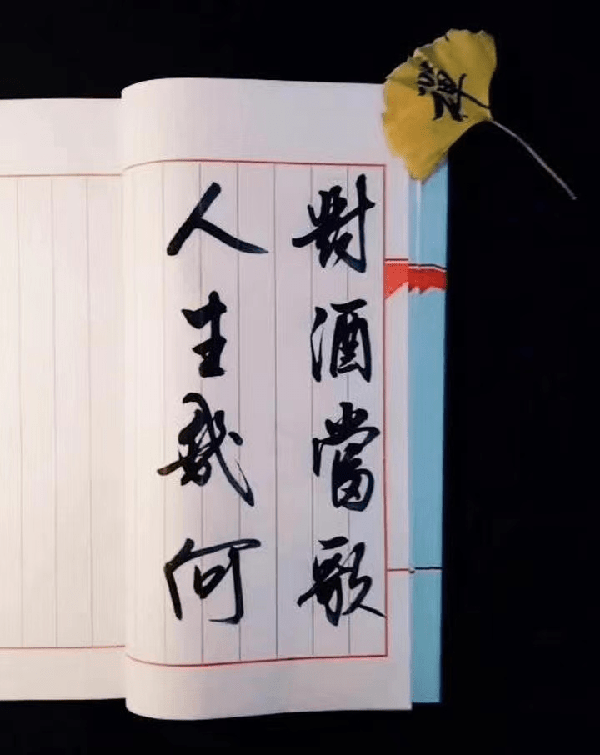 對酒當歌
人生幾何
禪